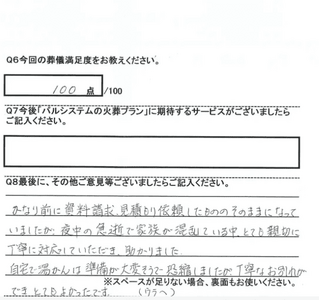 Q6今回の葬儀満足度をお教えください。
100 点 /100
Q7今後「パルシステムの火葬プラン」に期待するサービスがございましたら
ご記入ください。
Q8最後に、その他ご意見等ございましたらご記入ください。
かなり前に資料請求、見積り依頼したもののそのままになって
いましたが、夜中の急逝で家族が混乱している中、とても親切に
丁寧に対応していただき、助かりました
自宅で湯かんは準備が大変そうで恐縮しましたが丁寧なお別れが
※スペースが足りない場合、裏面もお使いください。
でき、とてもよかったです。 (ウラへ)